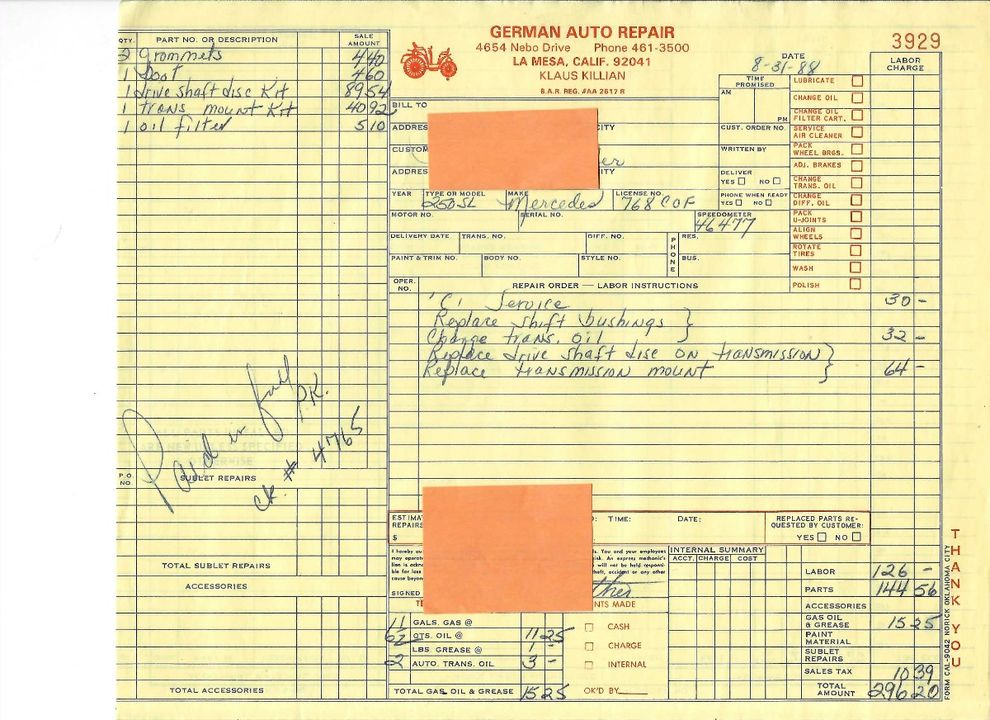 GERMAN AUTO REPAIR
4654 Nebo Drive Phone 461-3500
LA MESA, CALIF. 92041
KLAUS KILLIAN
B.A.R. REG. #AA 2617 R
3929
DATE
8-31-88
LABOR CHARGE
QTY. PART NO. OR DESCRIPTION SALE AMOUNT
2 grommets 4 40
1 boot 4 60
1 drive shaft disc Kit 89 54
1 trans mount Kit 40 92
1 oil filter 5 10
TIME PROMISED
AM
PM
CUST. ORDER NO.
WRITTEN BY
DELIVER
YES NO
PHONE WHEN READY
YES NO
LUBRICATE
CHANGE OIL
CHANGE OIL FILTER CART.
SERVICE AIR CLEANER
PACK WHEEL BRGS.
ADJ. BRAKES
CHANGE TRANS. OIL
CHANGE DIFF. OIL
PACK U-JOINTS
ALIGN WHEELS
ROTATE TIRES
WASH
POLISH
BILL TO
ADDRES CITY
CUSTOM er
ADDRES CITY
YEAR TYPE OR MODEL MAKE LICENSE NO.
250SL Mercedes 768 COF
MOTOR NO. SERIAL NO. SPEEDOMETER
46477
DELIVERY DATE TRANS. NO. DIFF. NO. PHONE RES.
PAINT & TRIM NO. BODY NO. STYLE NO. BUS.
OPER. NO. REPAIR ORDER — LABOR INSTRUCTIONS
'C' Service 30 -
Replace shift bushings }
Change trans. oil 32 -
Replace drive shaft disc on transmission }
Replace transmission mount } 64 -
Paid in full
P.K.
ck. # 4765
P.O. NO. SUBLET REPAIRS
TOTAL SUBLET REPAIRS
ACCESSORIES
TOTAL ACCESSORIES
ESTIMAT
REPAIRS
$
: TIME: DATE:
REPLACED PARTS REQUESTED BY CUSTOMER:
YES NO
I hereby au s. You and your employees
may operate isk. An express mechanic's
lien is ackn will not be held responsi-
ble for loss heft, accident or any other
cause beyon
SIGNED
TE NTS MADE
INTERNAL SUMMARY
ACCT. CHARGE COST
GALS. GAS @
6½ QTS. OIL @ 11 25
LBS. GREASE @ 1 -
2 AUTO. TRANS. OIL 3 -
TOTAL GAS, OIL & GREASE 15 25
CASH
CHARGE
INTERNAL
OK'D BY
LABOR 126 -
PARTS 144 56
ACCESSORIES
GAS OIL & GREASE 15 25
PAINT MATERIAL
SUBLET REPAIRS
SALES TAX 10 39
TOTAL AMOUNT 296 20
THANK YOU
FORM CAL-9042 NORICK OKLAHOMA CITY